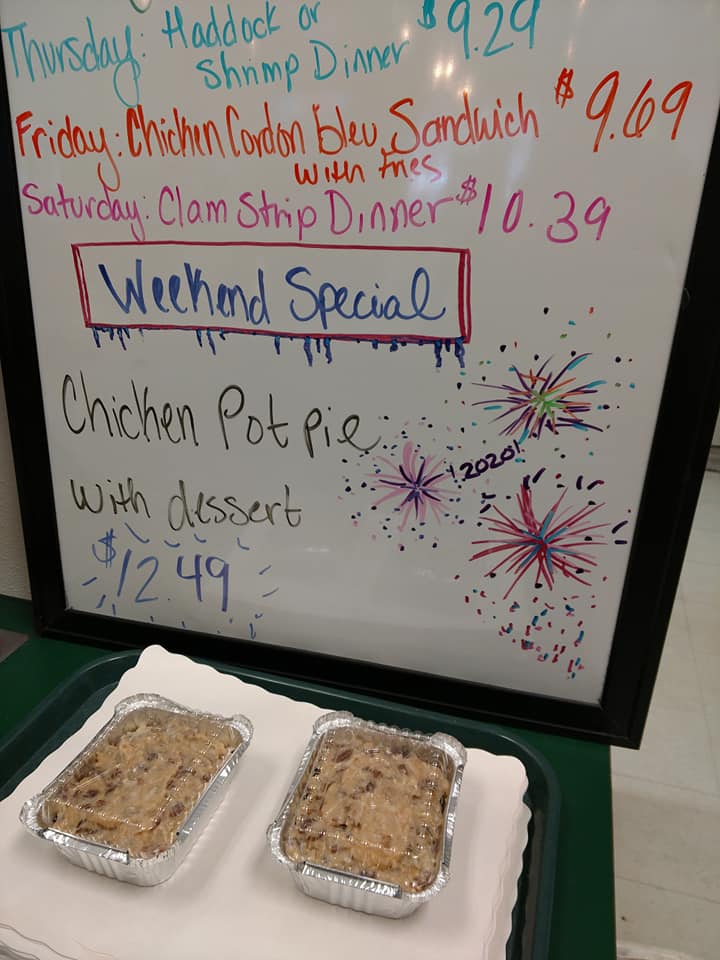 Thursday: Haddock or $9.29
Shrimp Dinner
Friday: Chicken Cordon bleu Sandwich $9.69
with fries
Saturday: Clam Strip Dinner $10.39
Weekend Special
Chicken Pot pie
!2020!
with dessert
$12.49